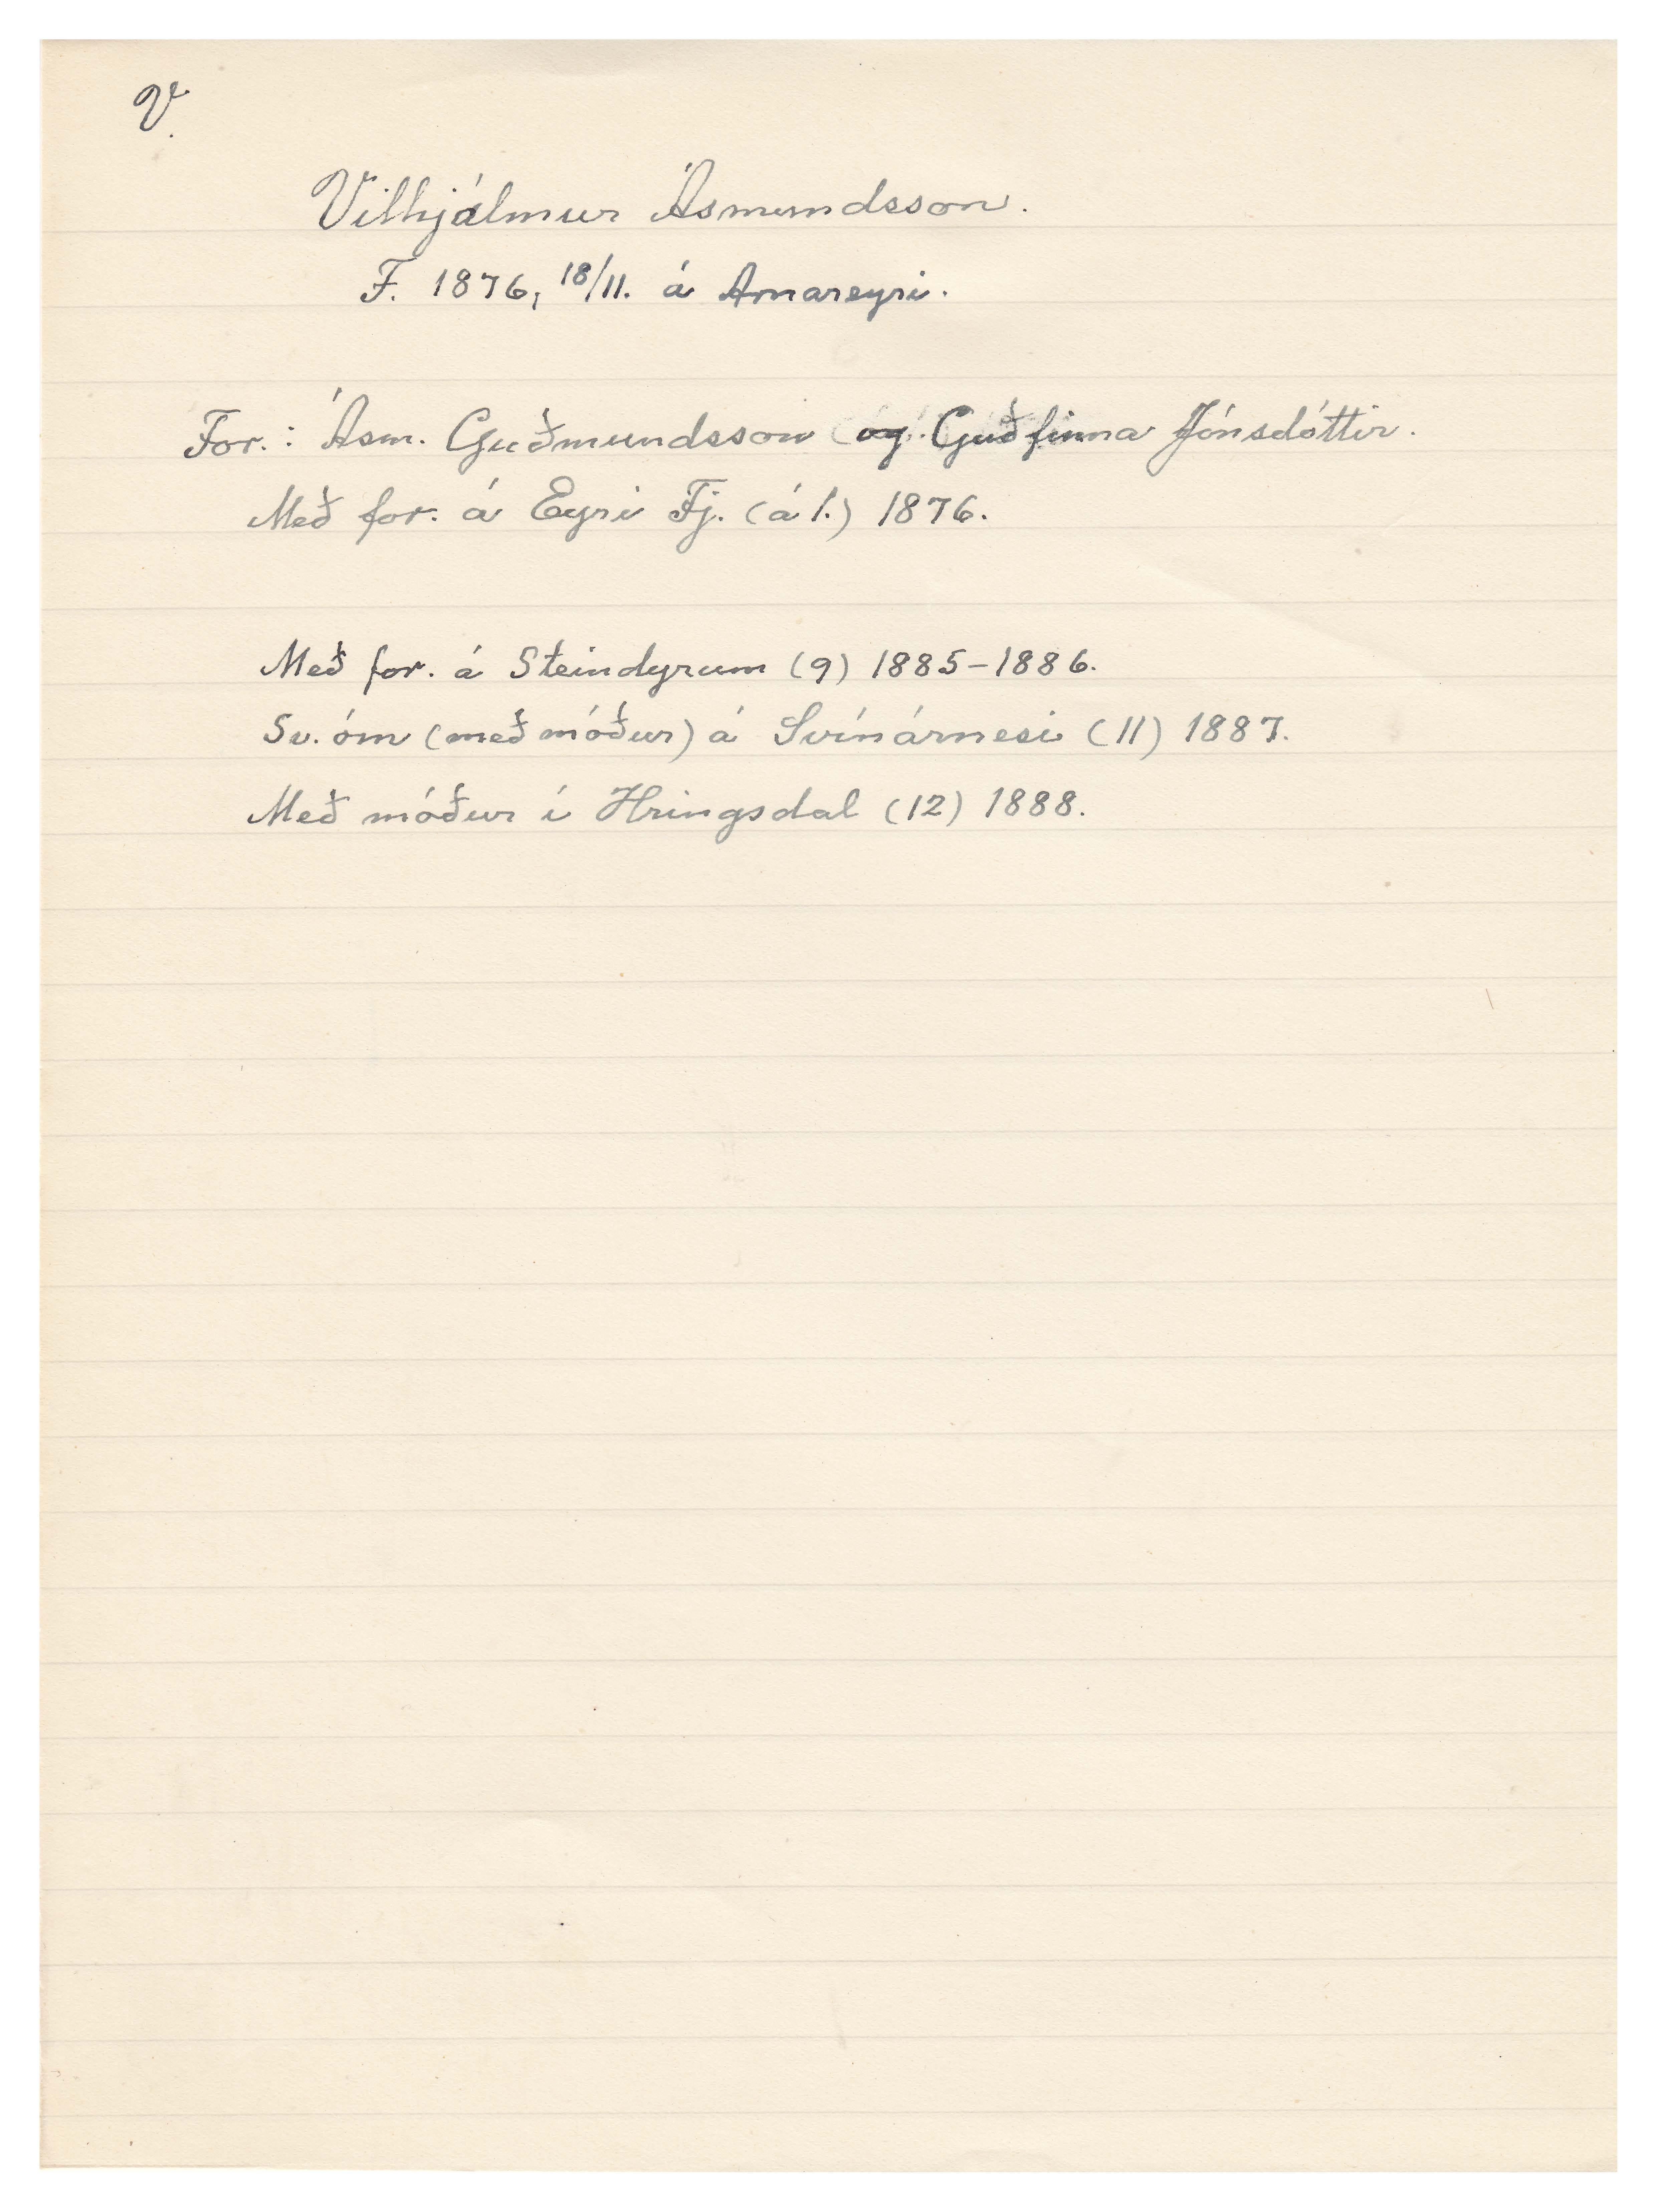 V.
Vilhjálmur Ásmundsson.
F. 1876, 18/11. á Arnareyri.
For.: Ásm. Guðmundsson og Guðfinna Jónsdóttir.
Með for. á Eyri Fj. (á 1.) 1876.
Með for. á Steindyrum (9) 1885-1886.
Sv. óm (með móður) á Svínárnesi (11) 1887.
Með móður í Hringsdal (12) 1888.